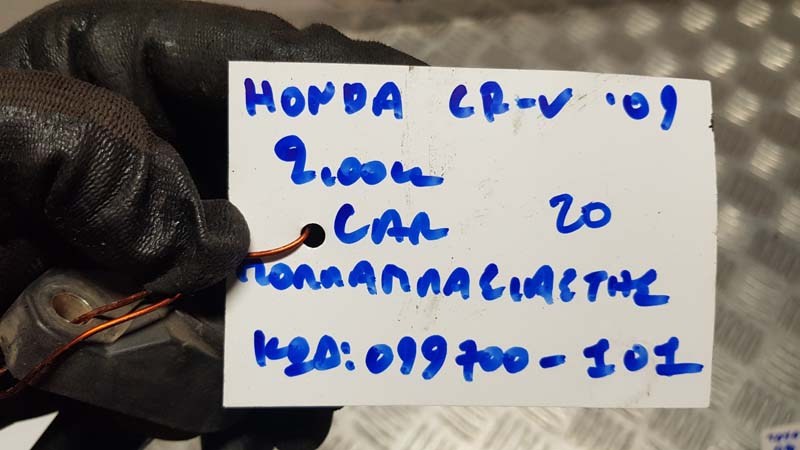 HONDA CR-V '09
2.00cc
CAR 20
ΠΟΛΛΑΠΛΑΣΙΑΣΤΗΣ
ΚΩΔ: 099700-101